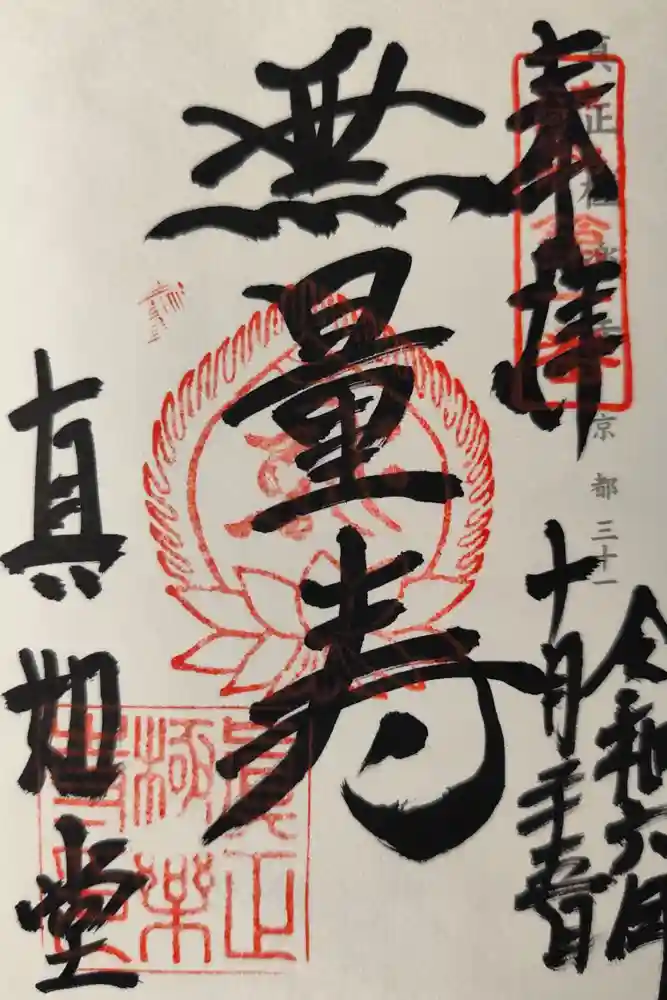 奉拝
真正極楽寺 京都三十一
令和六年
十月二十五日
無量寿
真如堂
眞正
極樂